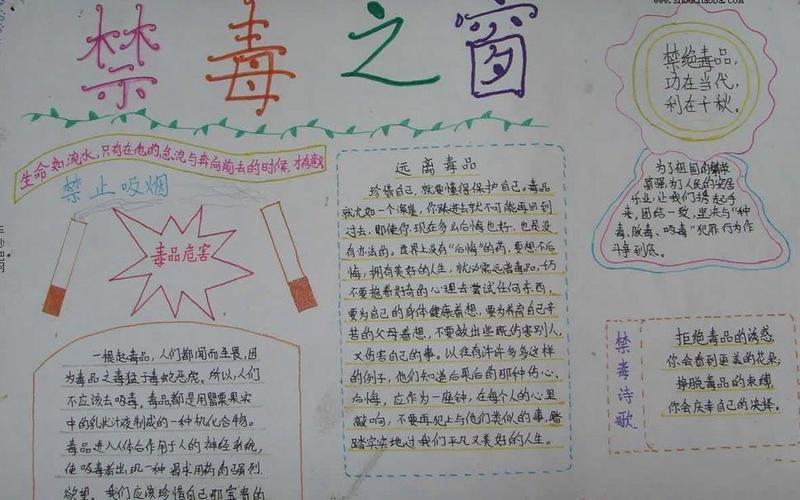 禁毒之窗
生命如流水,只有在他的急流与奔向前去的时候,才有意义
禁止吸烟
毒品危害
一提起毒品,人们都闻而生畏,因
为毒品之毒猛于毒蛇恶虎。所以,人们
不应该去吸毒。毒品都是用罂粟果实
中的乳米汁液制成的一种机化合物。
毒品进入人体合作用于人的神经系统,
使吸毒者出现一种渴求用药的强烈
欲望。我们应该珍惜自己那宝贵的
远离毒品
珍惜自己,就要懂得保护自己。毒品
就犹如一个深崖,你跃进去就不可能再回到
过去,即使你现在多么后悔也好,也是没
有办法的。世界上没有“后悔”的药,要想不后
悔,拥有美好的人生,就必需远离毒品,切
不要抱着好奇的心理去尝试任何东西,
要为自己的身体健康着想,要为养育自己辛
苦的父母着想,不要做出些既伤害别人,
又伤害自己的事。以往有许许多多这样
的例子,他们知道后果后的那种伤心、
后悔,应作为一座钟,在每个人的心里
敲响,不要再犯上与他们类似的事,踏
踏实实地过我们平凡又美好的人生。
禁绝毒品,
功在当代,
利在千秋。
为了祖国的繁荣
富强,为了人民的安居
乐业,让我们携起手
来,团结一致,坚决与“种
毒、贩毒、吸毒”犯罪行为作
斗争到底。
禁毒诗歌
拒绝毒品的诱惑
你会看到更美的花朵,
挣脱毒品的束缚
你会庆幸自己的决择。